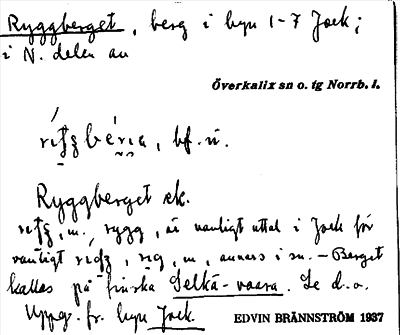 Ryggberget, berg i byn 1-7 Jock;
i N. delen av
Överkalix sn o. tg Norrb. l.
bf. ú.
Ryggberget æk.
m., rygg, är vanligt uttal i Jock för
vanligt m., annars i sn. – Berget
kallas på finska Selkä-vaara. Se d.o.
Uppg. fr. byn Jock.
EDVIN BRÄNNSTRÖM 1937